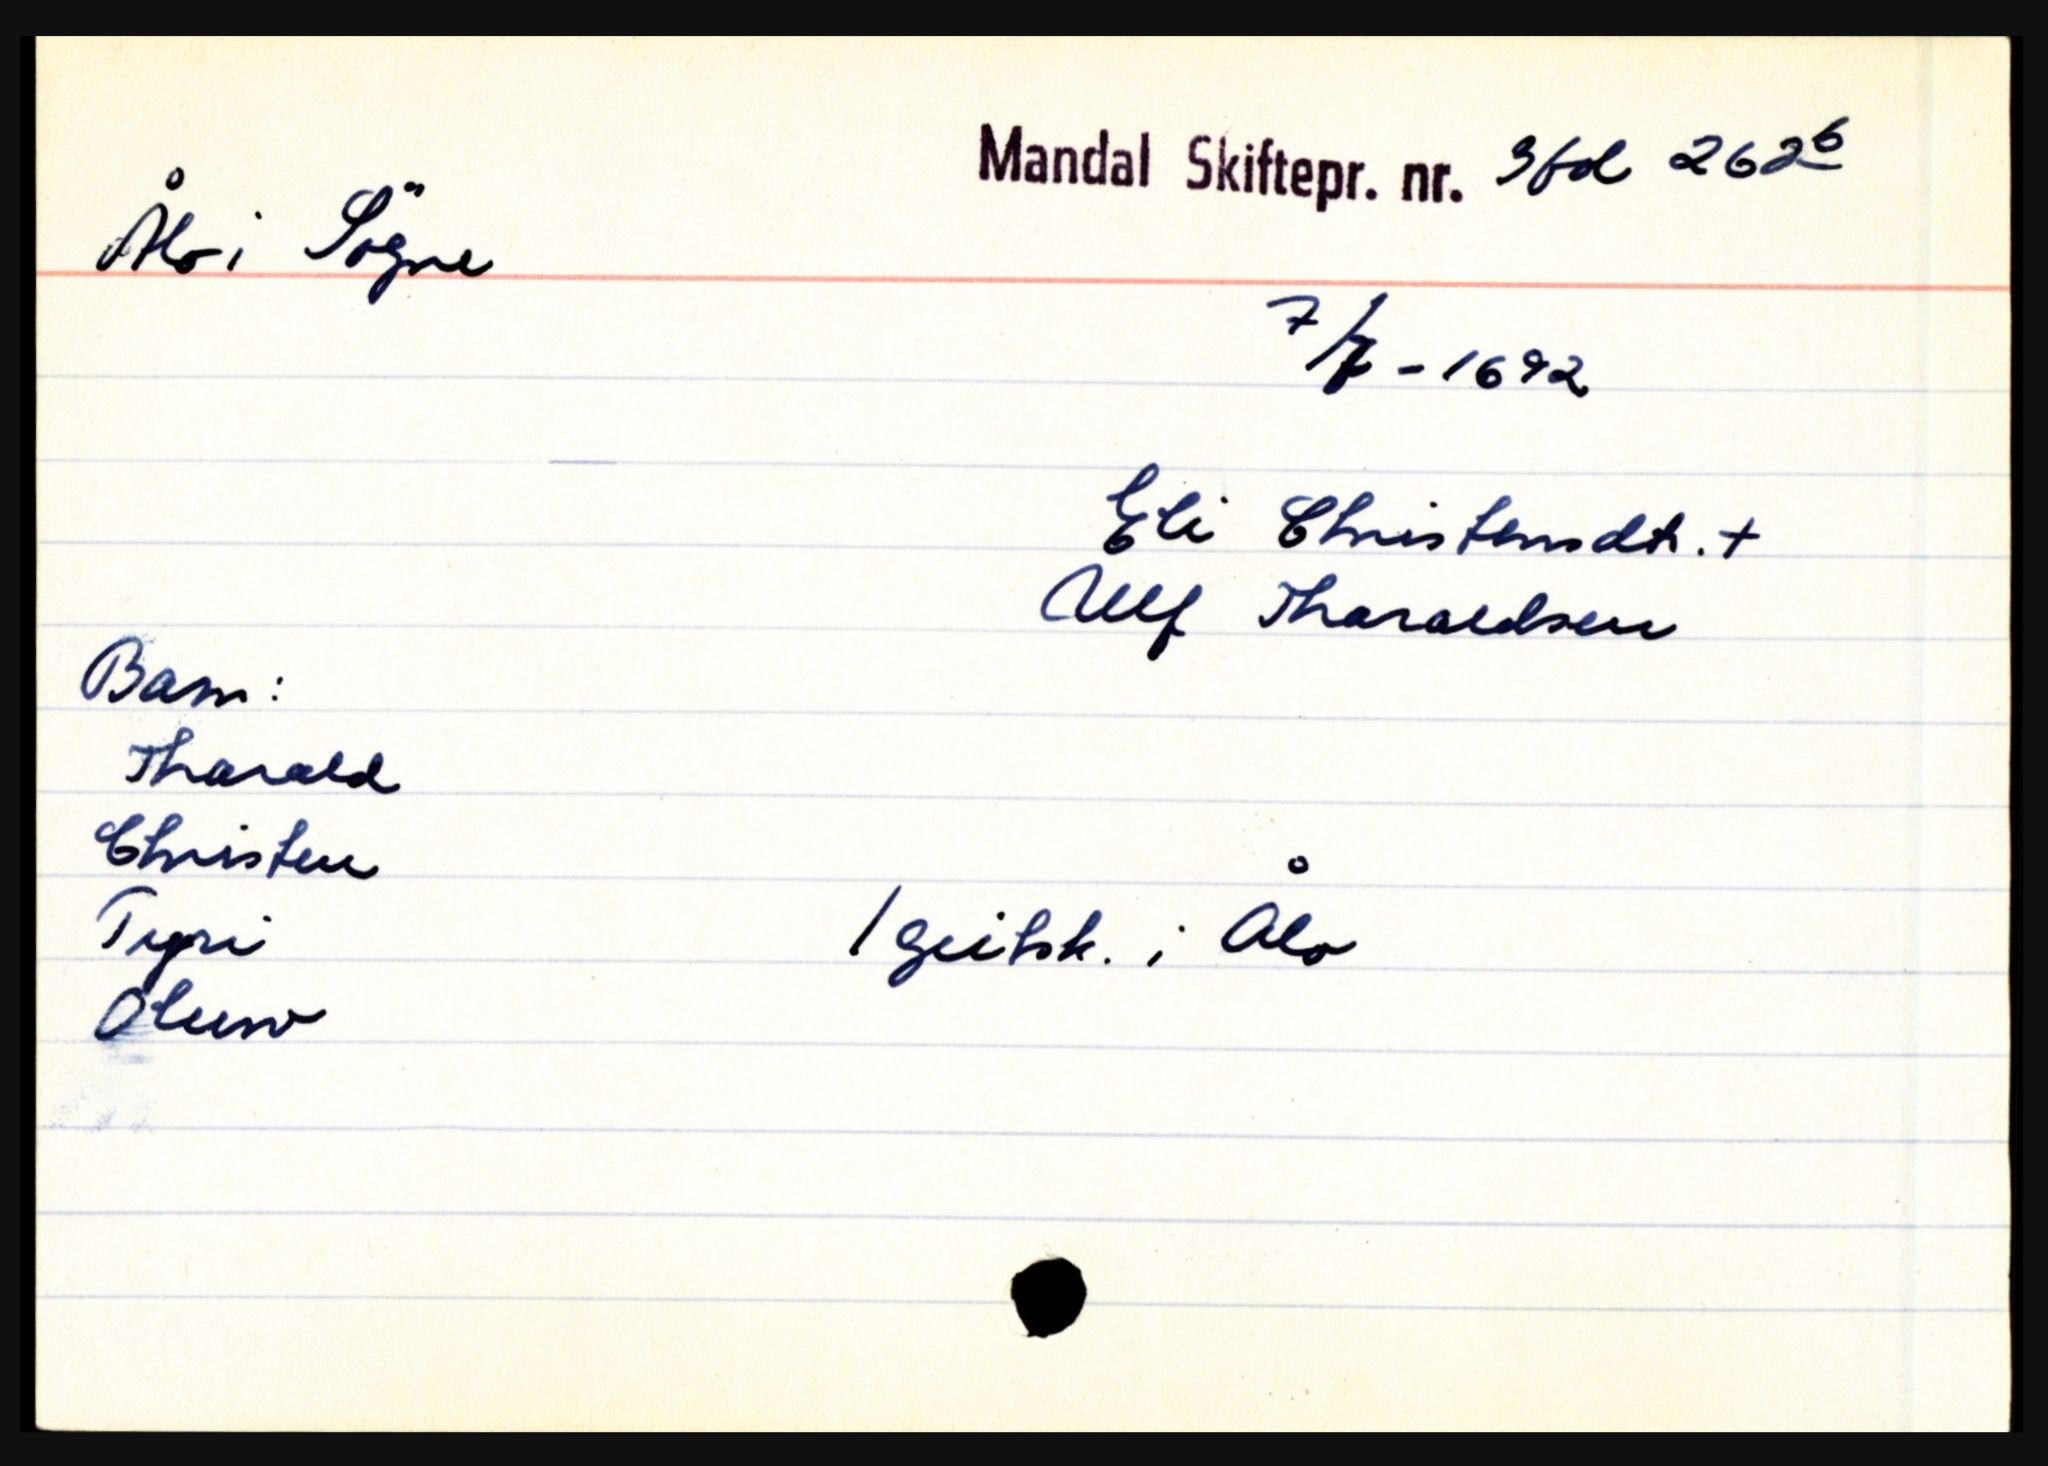 Mandal Skiftepr. nr. 3 fol 262b
Ålo i Sögne
7/7 - 1692
Eli Christensdtr. +
Ulf Tharaldsen
Barn:
Tharald
Christen
Tyri
1 geitsk. i Ålo
Oluw